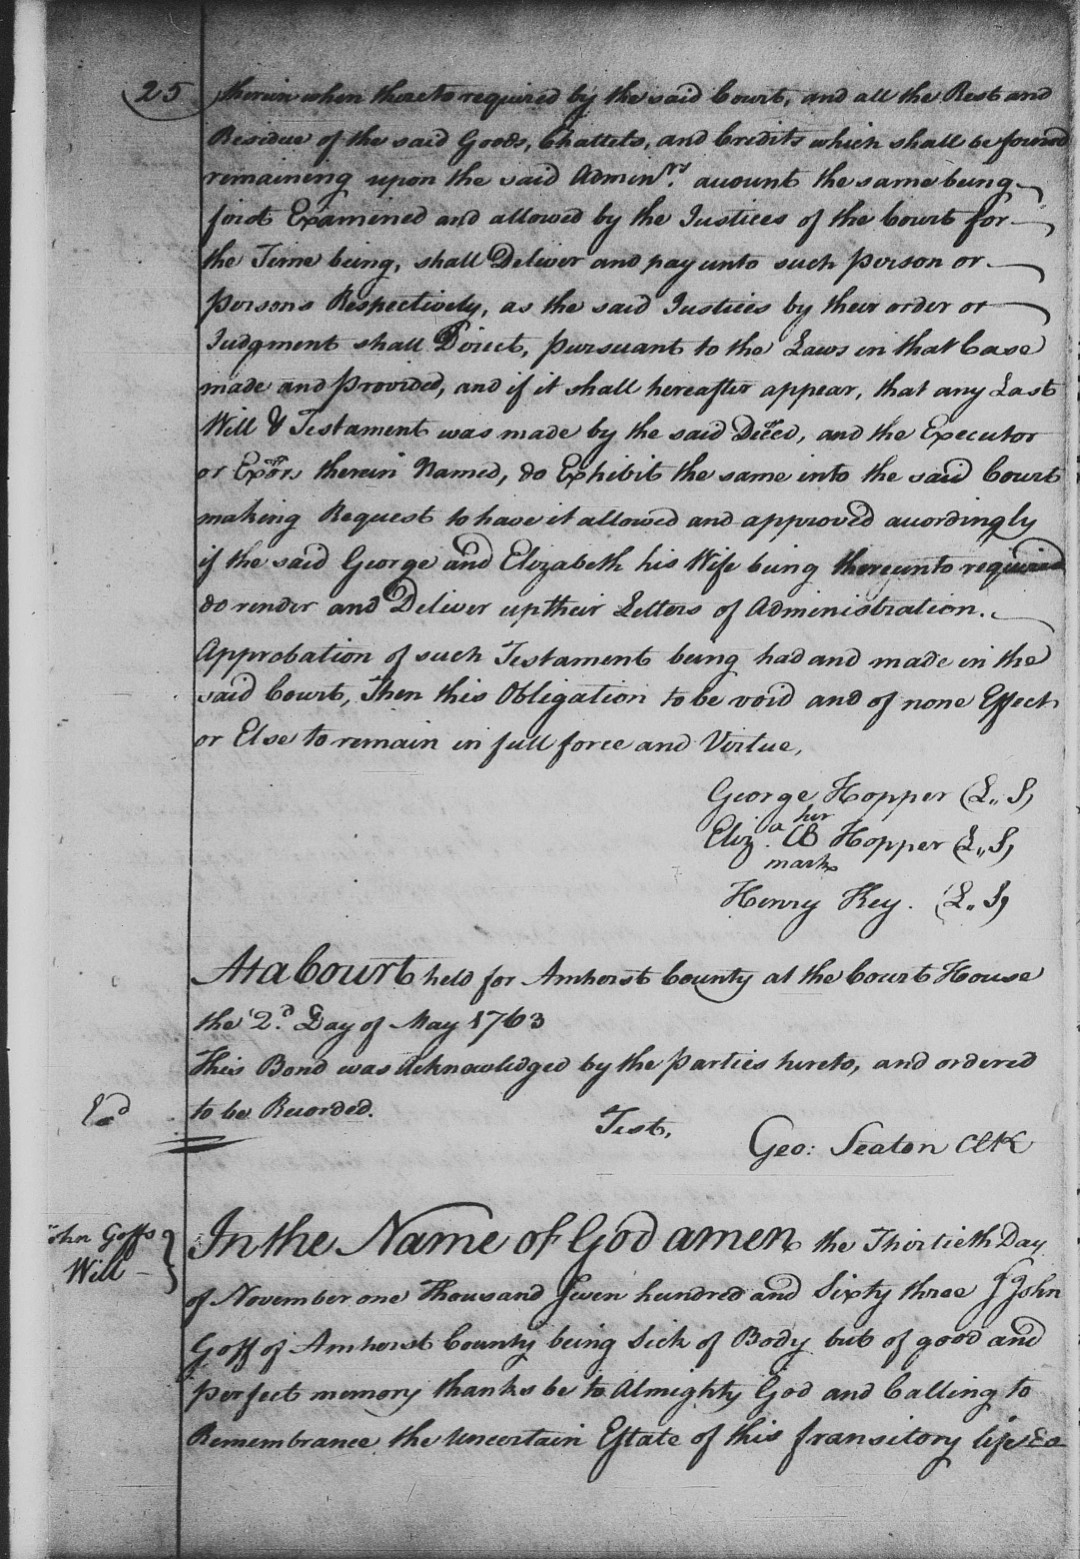 25 therein when thereto required by the said Court, and all the Rest and
Residue of the said Goods, Chattels, and Credits which shall be found
remaining upon the said Adminrs. account the same being
first Examined and allowed by the Justices of the Court for
the Time being, shall Deliver and pay unto such person or
persons Respectively, as the said Justices by their order or
Judgment shall Direct, pursuant to the Laws in that Case
made and provided, and if it shall hereafter appear, that any Last
Will & Testament was made by the said Deced, and the Executor
or Exors therein Named, do Exhibit the same into the said Court
making Request to have it allowed and approved accordingly
if the said George and Elizabeth his Wife being thereunto required
do render and Deliver up their Letters of Administration.
Approbation of such Testament being had and made in the
said Court, Then this Obligation to be void and of none Effect
or Else to remain in full force and Virtue,
George Hopper (L,, S)
her
Eliza. CB Hopper (L,, S)
mark
Henry Key. (L,, S)
At a Court held for Amherst County at the Court House
the 2d. Day of May 1763
This Bond was acknowledged by the parties hereto, and ordered
to be Recorded.
Test,
Exd
Geo: Seaton ClK
John Goffs
Will
In the Name of God amen the Thirtieth Day
of November one Thousand Seven hundred and Sixty three I John
Goff of Amherst County being Sick of Body but of good and
perfect memory thanks be to Almighty God and Calling to
Remembrance the uncertain Estate of this transitory life &a